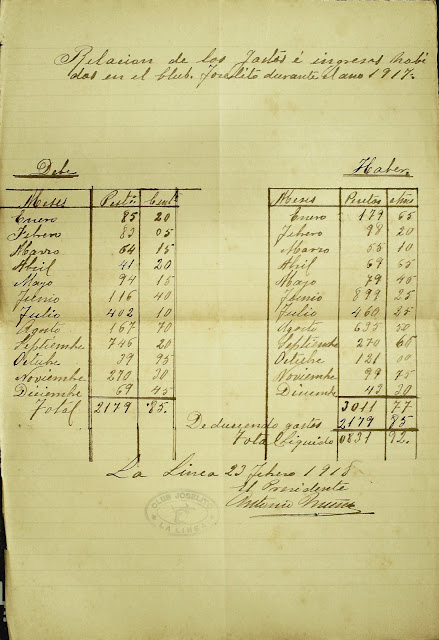 Relacion de los Gastos é ingresos habi
dos en el Club. Joselito durante el año 1917.
Debe Haber
Meses Pesetas Cents Meses Pesetas
Enero 85 20 Enero 179 65
Febrero 83 05 Febrero 98 20
Marzo 64 15 Marzo 55 10
Abril 41 20 Abril 69 55
Mayo 94 15 Mayo 79 45
Junio 116 40 Junio 899 25
Julio 402 10 Julio 460 25
Agosto 167 70 Agosto 635 50
Septiembre 746 20 Septiembre 270 60
Octubre 39 95 Octubre 121 00
Noviembre 270 30 Noviembre 99 75
Diciembre 69 45 Diciembre 43 30
Total 2179 85. 3011 77
Deduciendo gastos 2179 85
Total liquido 0831 92.
La Linea 23 Febrero 1918
El Presidente
Antonio
CLUB JOSELITO
LA LINEA